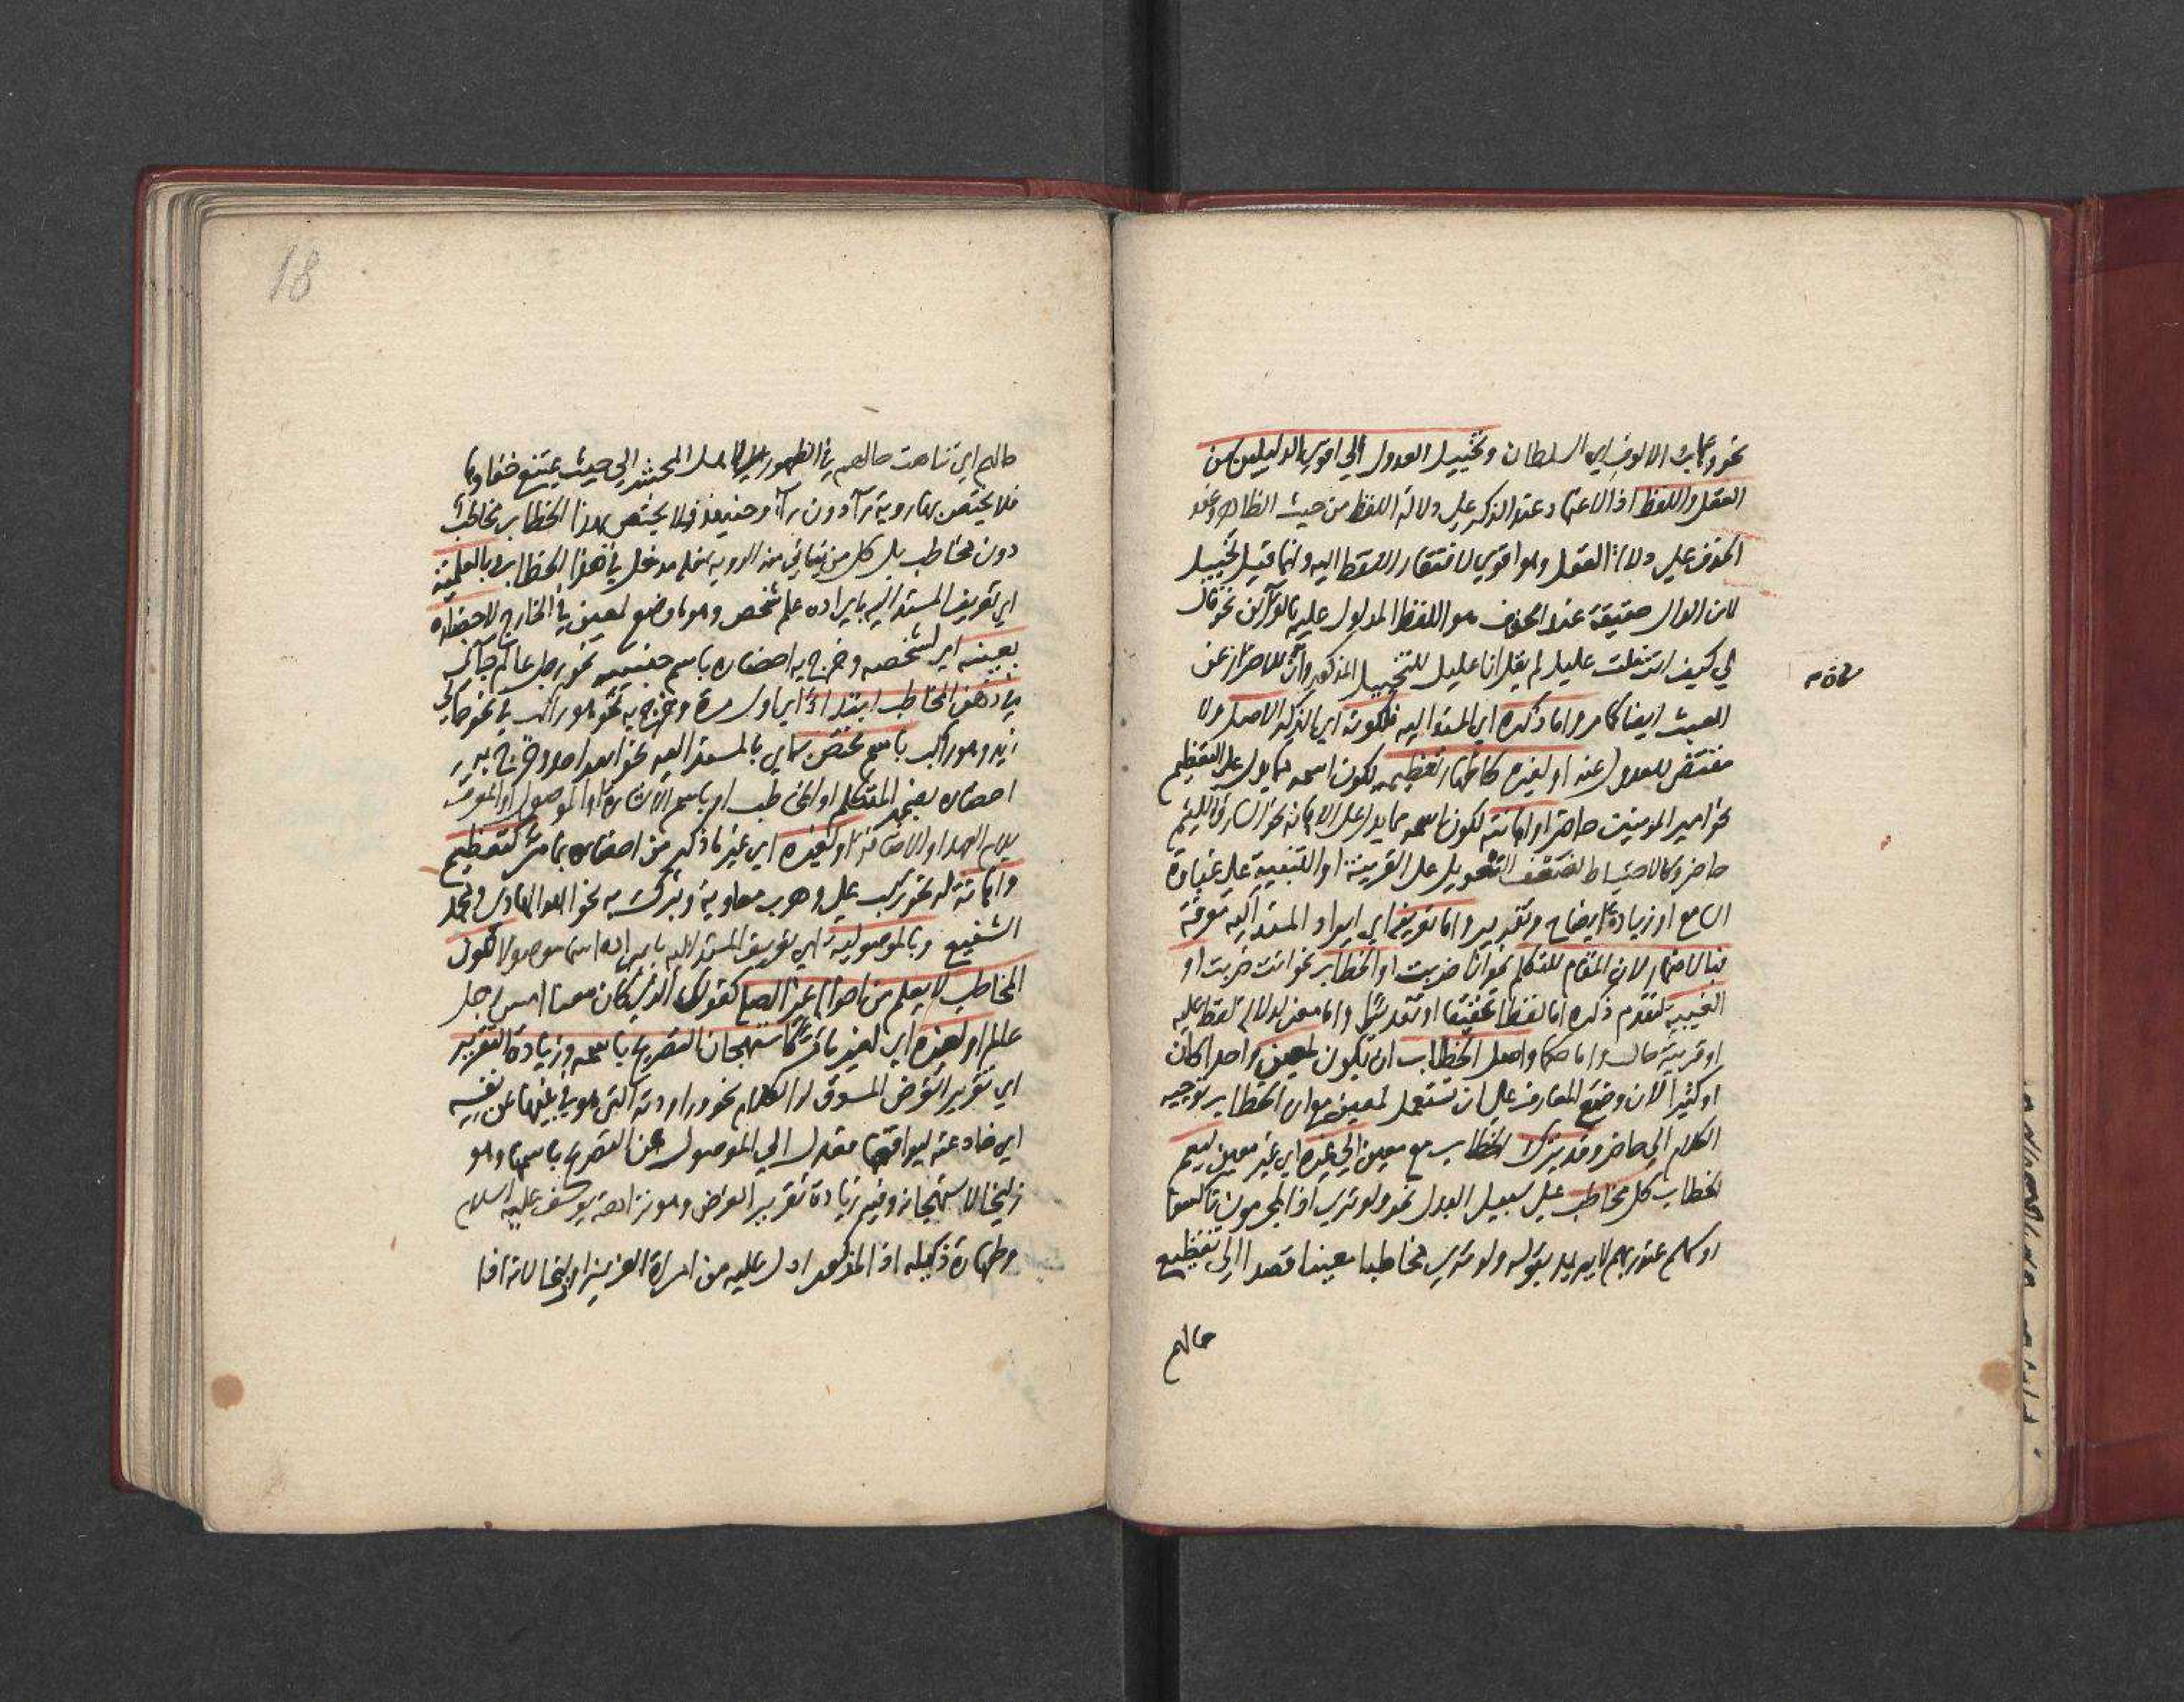 نحو وهاب الالوف اي السلطان وتخييل العدول الي اقوي الدليلين من
العقل واللفظ اذ الاعتماد عند الذكر علي دلالة اللفظ من حيث الظاهر وعند
الحذف علي دلالة العقل وهو اقوي لافتقار اللفظ اليه وانما قيل تخييل
لان الدال حقيقة عند الحذف هو اللفظ المدلول عليه بالقرآئن نحو قال
لي كيف انت قلت عليل لم يقل انا عليل للتخييل المذكور وللاحتراز عن
العبث ايضا كما مر واما ذكره اي المسند اليه فلكونه اي الذكر الاصل ولا
مقتضي للعدول عنه او لغيره كاظهار تعظيمه لكون اسمه مما يدل علي التعظيم
نحو امير المومنين حاضر او اهانته لكون اسمه مما يدل علي الاهانة نحو السارق اللئيم
حاضر وكالاحتياط لضعف التعويل علي القرينة او التنبيه علي غباوة
السامع او زيادة ايضاح وتقرير واما تعريفه اي ايراد المسند اليه معرفة
فبالاضمار لان المقام للتكلم نحو انا ضربت او الخطاب نحو انت ضربت او
الغيبة لتقدم ذكره اما لفظا تحقيقا او تقديرا واما معني لدلالة لفظ عليه
او قرينة حال واما حكما واصل الخطاب ان يكون لمعين واحدا كان
او كثيرا لان وضع المعارف علي ان تستعمل لمعين مع ان الخطاب توجيه
الكلام الي حاضر وقد يترك الخطاب مع معين الي غيره اي غير معين ليعم
الخطاب كل مخاطب علي سبيل البدل نحو ولو تري اذ المجرمون ناكسوا
روسهم عند ربهم لا يريد بقوله ولو تري مخاطبا معينا قصدا الي تفظيع
حالهم
حالهم اي تناهت حالهم في الظهور لاهل المحشر الي حيث يمتنع خفاوها
فلا يختص بها روية رآء دون رآء وحينئذ فلا يختص بهذا الخطاب مخاطب
دون مخاطب بل كل من يتاتي منه الروية فله مدخل في هذا الخطاب وبالعلمية
اي تعريف المسند اليه بايراده علم شخص وهو ما وضع لمعين في الخارج لاحضاره
بعينه اي بشخصه وخرج به احضاره باسم جنسه نحو رجل عالم جآني
في ذهن المخاطب ابتدآءً اي اول مرة وخرج به نحو هو راكب في نحو جاني
زيد وهو راكب باسم مختص به اي بالمسند اليه نحو الله احد وخرج به
احضاره بضمير المتكلم او المخاطب او باسم الاشارة او الموصول او المعرف
بلام العهد او الاضافة او لغيره اي غير ما ذكر من احضاره بما مر كتعظيم
واهانة له نحو ركب علي وهرب معاوية وتبرك به نحو الله الهادي ومحمد
الشفيع وبالموصولية اي تعريف المسند اليه بايراده اسما موصولا لكون
المخاطب لا يعلم من احواله غير الصلة كقولك الذي كان معنا امس رجل
عالم او لغيره اي لغير ما مر كاستهجان التصريح باسمه وزيادة التقرير
اي تقرير الغرض المسوق له الكلام نحو وراودته التي هو في بيتها عن نفسه
اي خادعته ليواقعها فعدل الي الموصول عن التصريح باسمها وهو
زليخا لاستهجانه وفيه زيادة تقرير الغرض وهو نزاهة يوسف عليه السلام
وطهارة ذيله اذ المذكور ادل عليه من امراة العزيز او زليخا لانه اذا
18